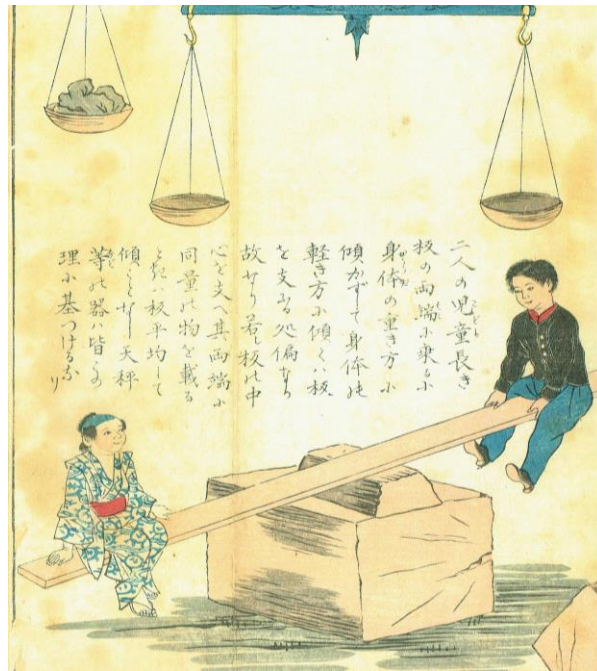 二人の児童長き
板の両端に乗るに
身体の重き方に
傾かずして身体の
軽き方に傾くハ板
を支ふる処偏なる
故なり若し板の中
心を支へ其両端に
同量の物を載る
ときハ板平均して
傾くことなし天秤
等の器ハ皆この
理に基つけるなり